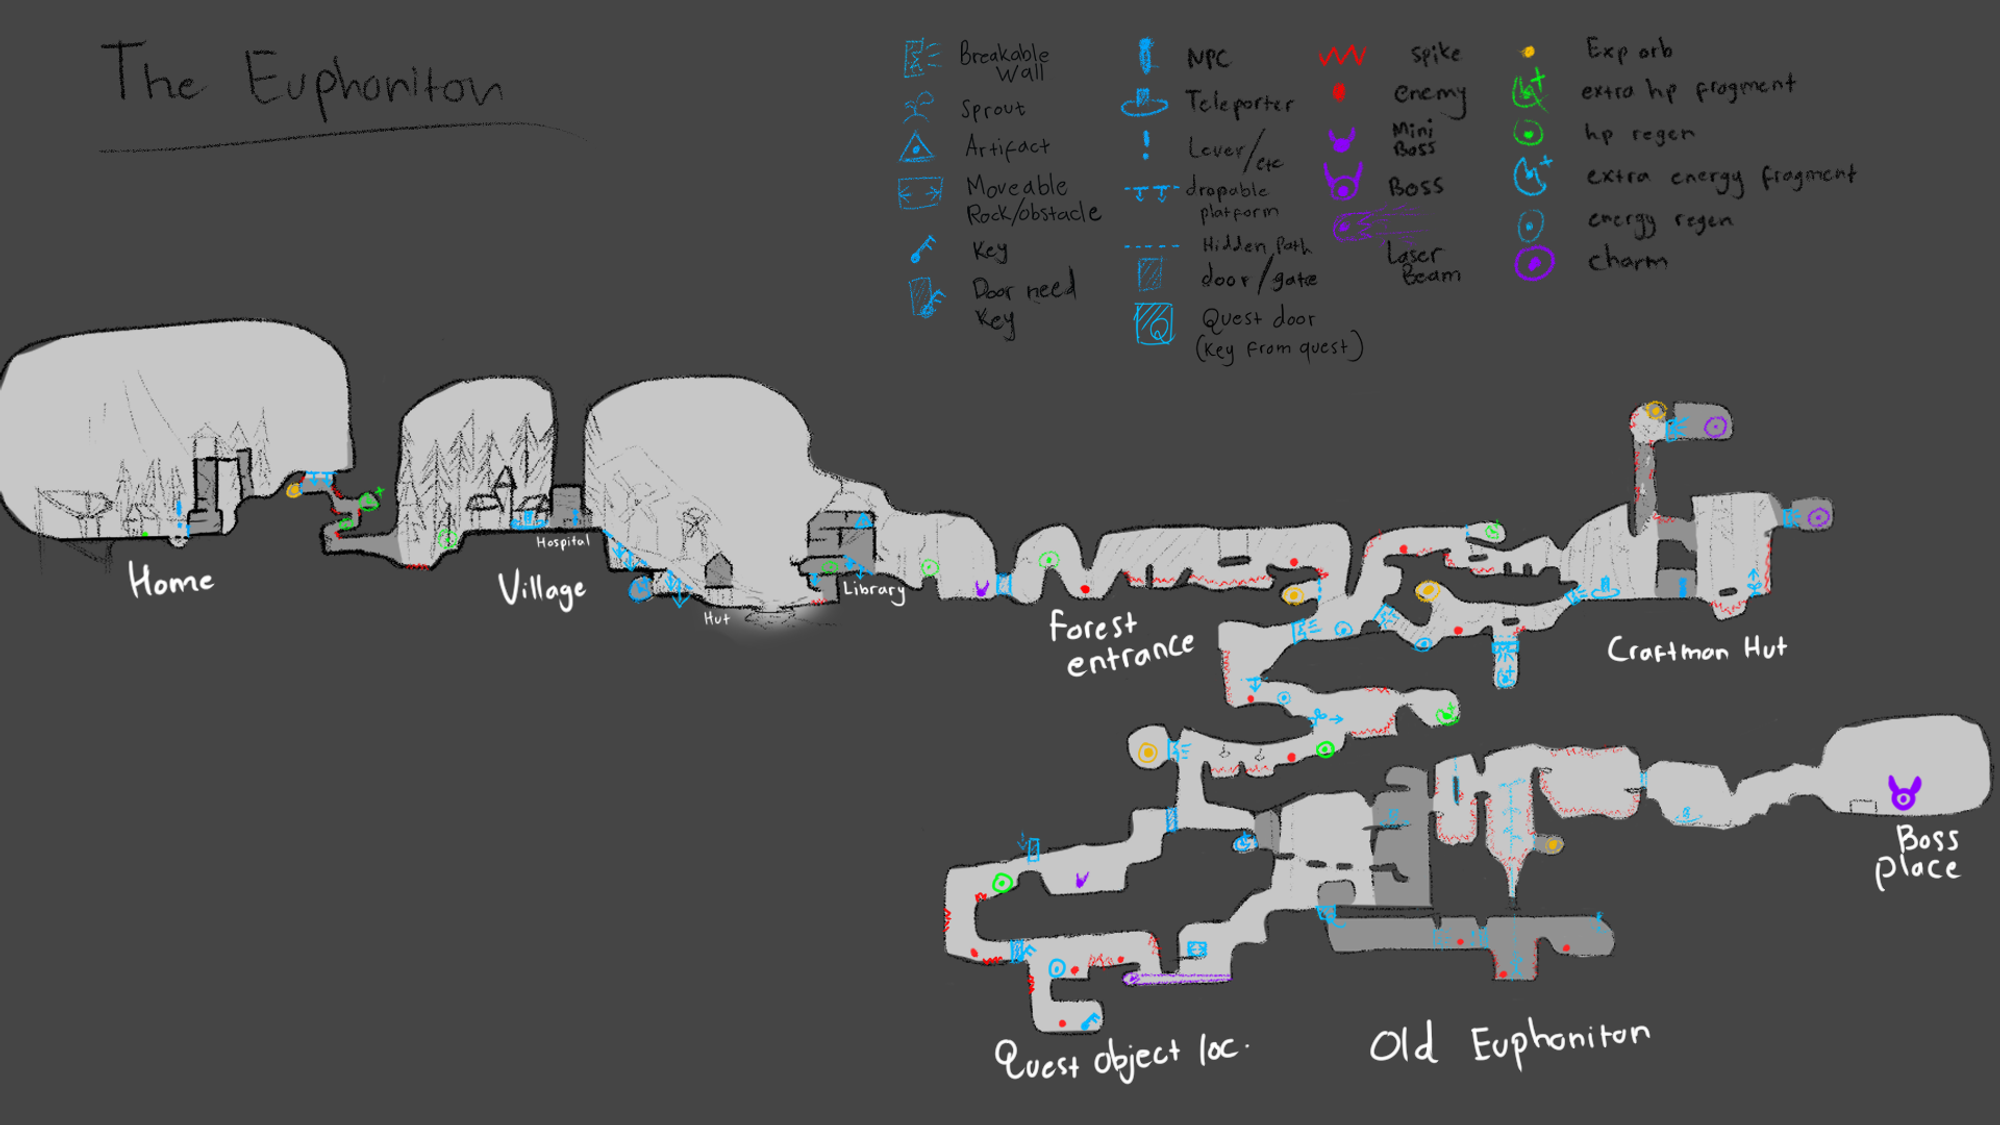 The Euphoniton
Breakable
Wall
Sprout
Artifact
Moveable
Rock/obstacle
Key
Door need
Key
NPC
Teleporter
Lever/etc
dropable
platform
Hidden Path
door/gate
Quest door
(Key from quest)
Spike
enemy
Mini
Boss
Boss
Laser
Beam
Exp orb
extra hp fragment
hp regen
extra energy fragment
energy regen
charm
Home
Village
Hospital
Hut
Library
Forest
entrance
Craftman Hut
Boss
place
Quest object loc.
Old Euphoniton